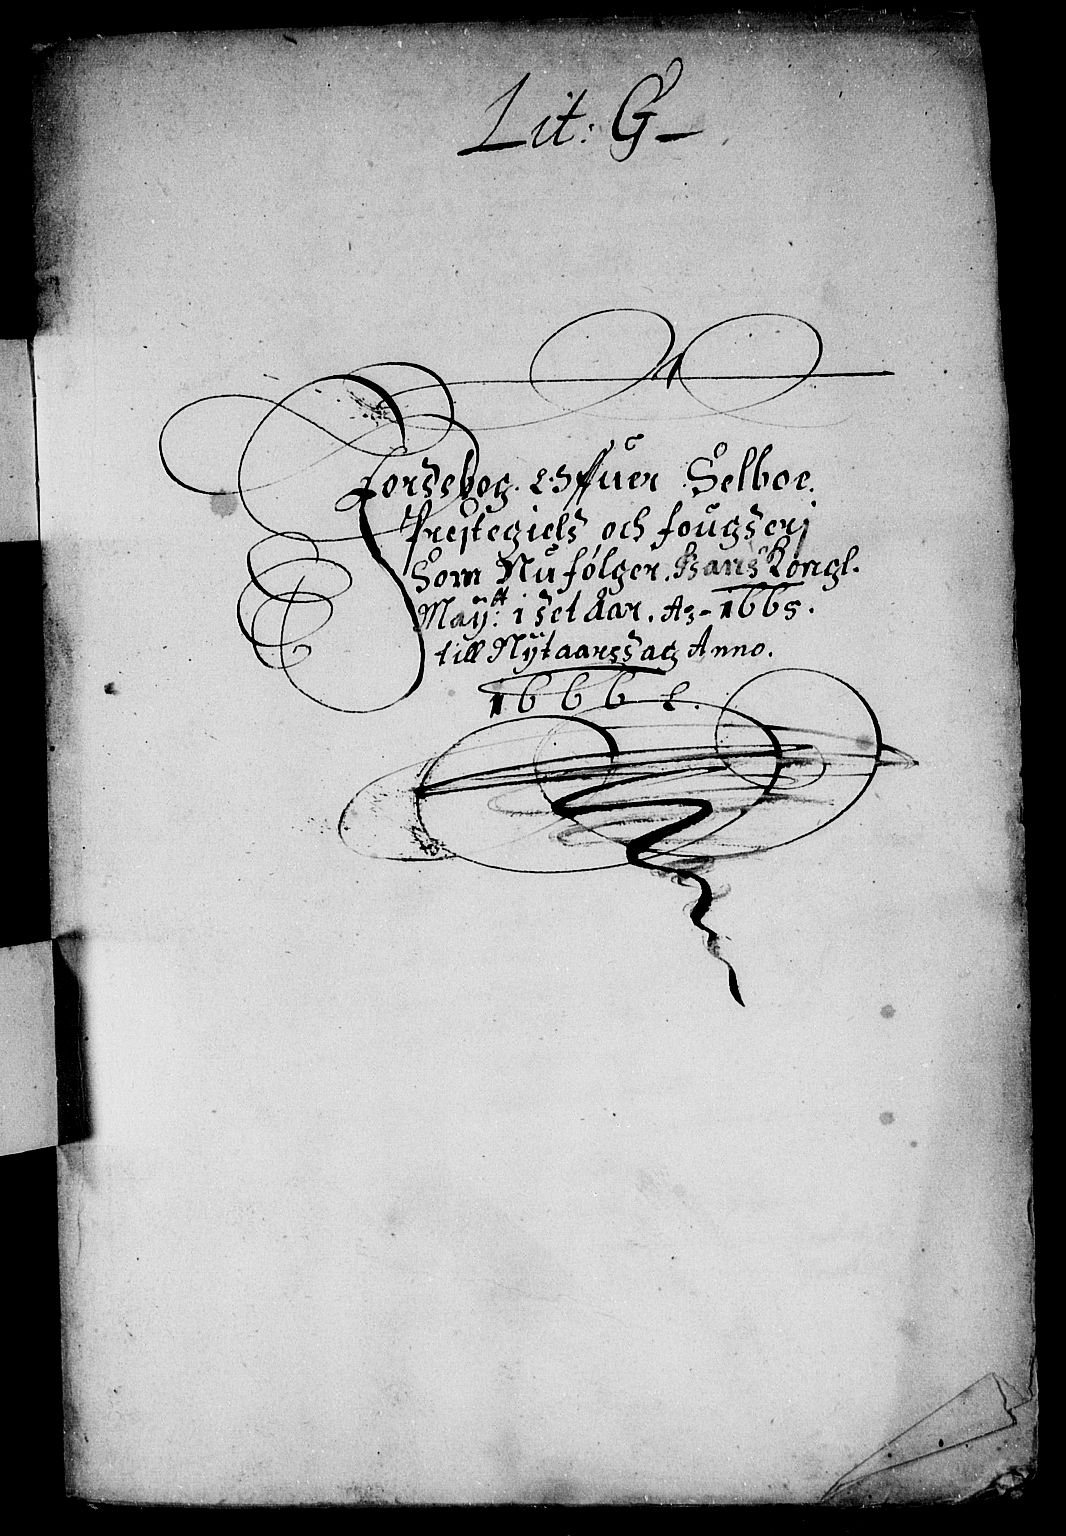 Lit: G
Jordebog. Offuer Selboe.
Prestegield och fougderj
Som Nu følger. Hans Kongl.
Maÿ:tt i det Aar. Ao- 1665.
till Nÿtaarsdag Anno.
1666